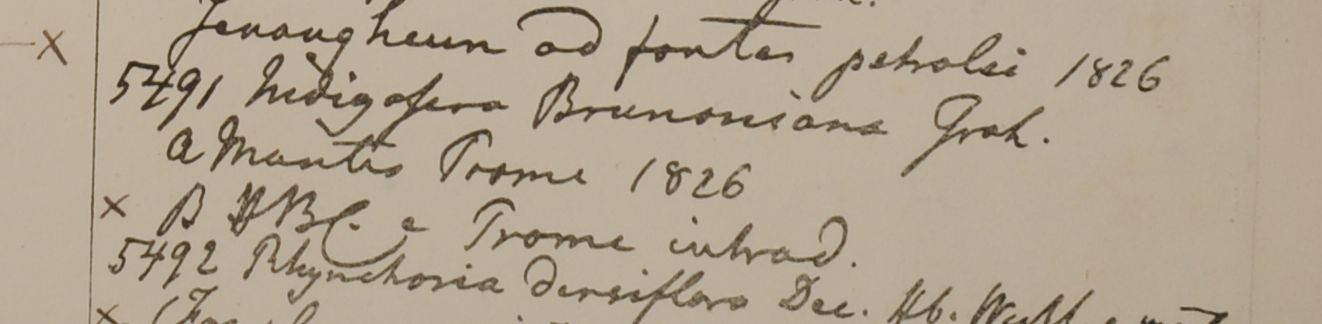 Jenangheun ad fontes petrolei 1826
5491 Indigofera Brunoniana Grah.
a Montis Prome 1826
B HBC. e Prome introd.
5492 Rhynchosia densiflora Dec. Hb. Wall